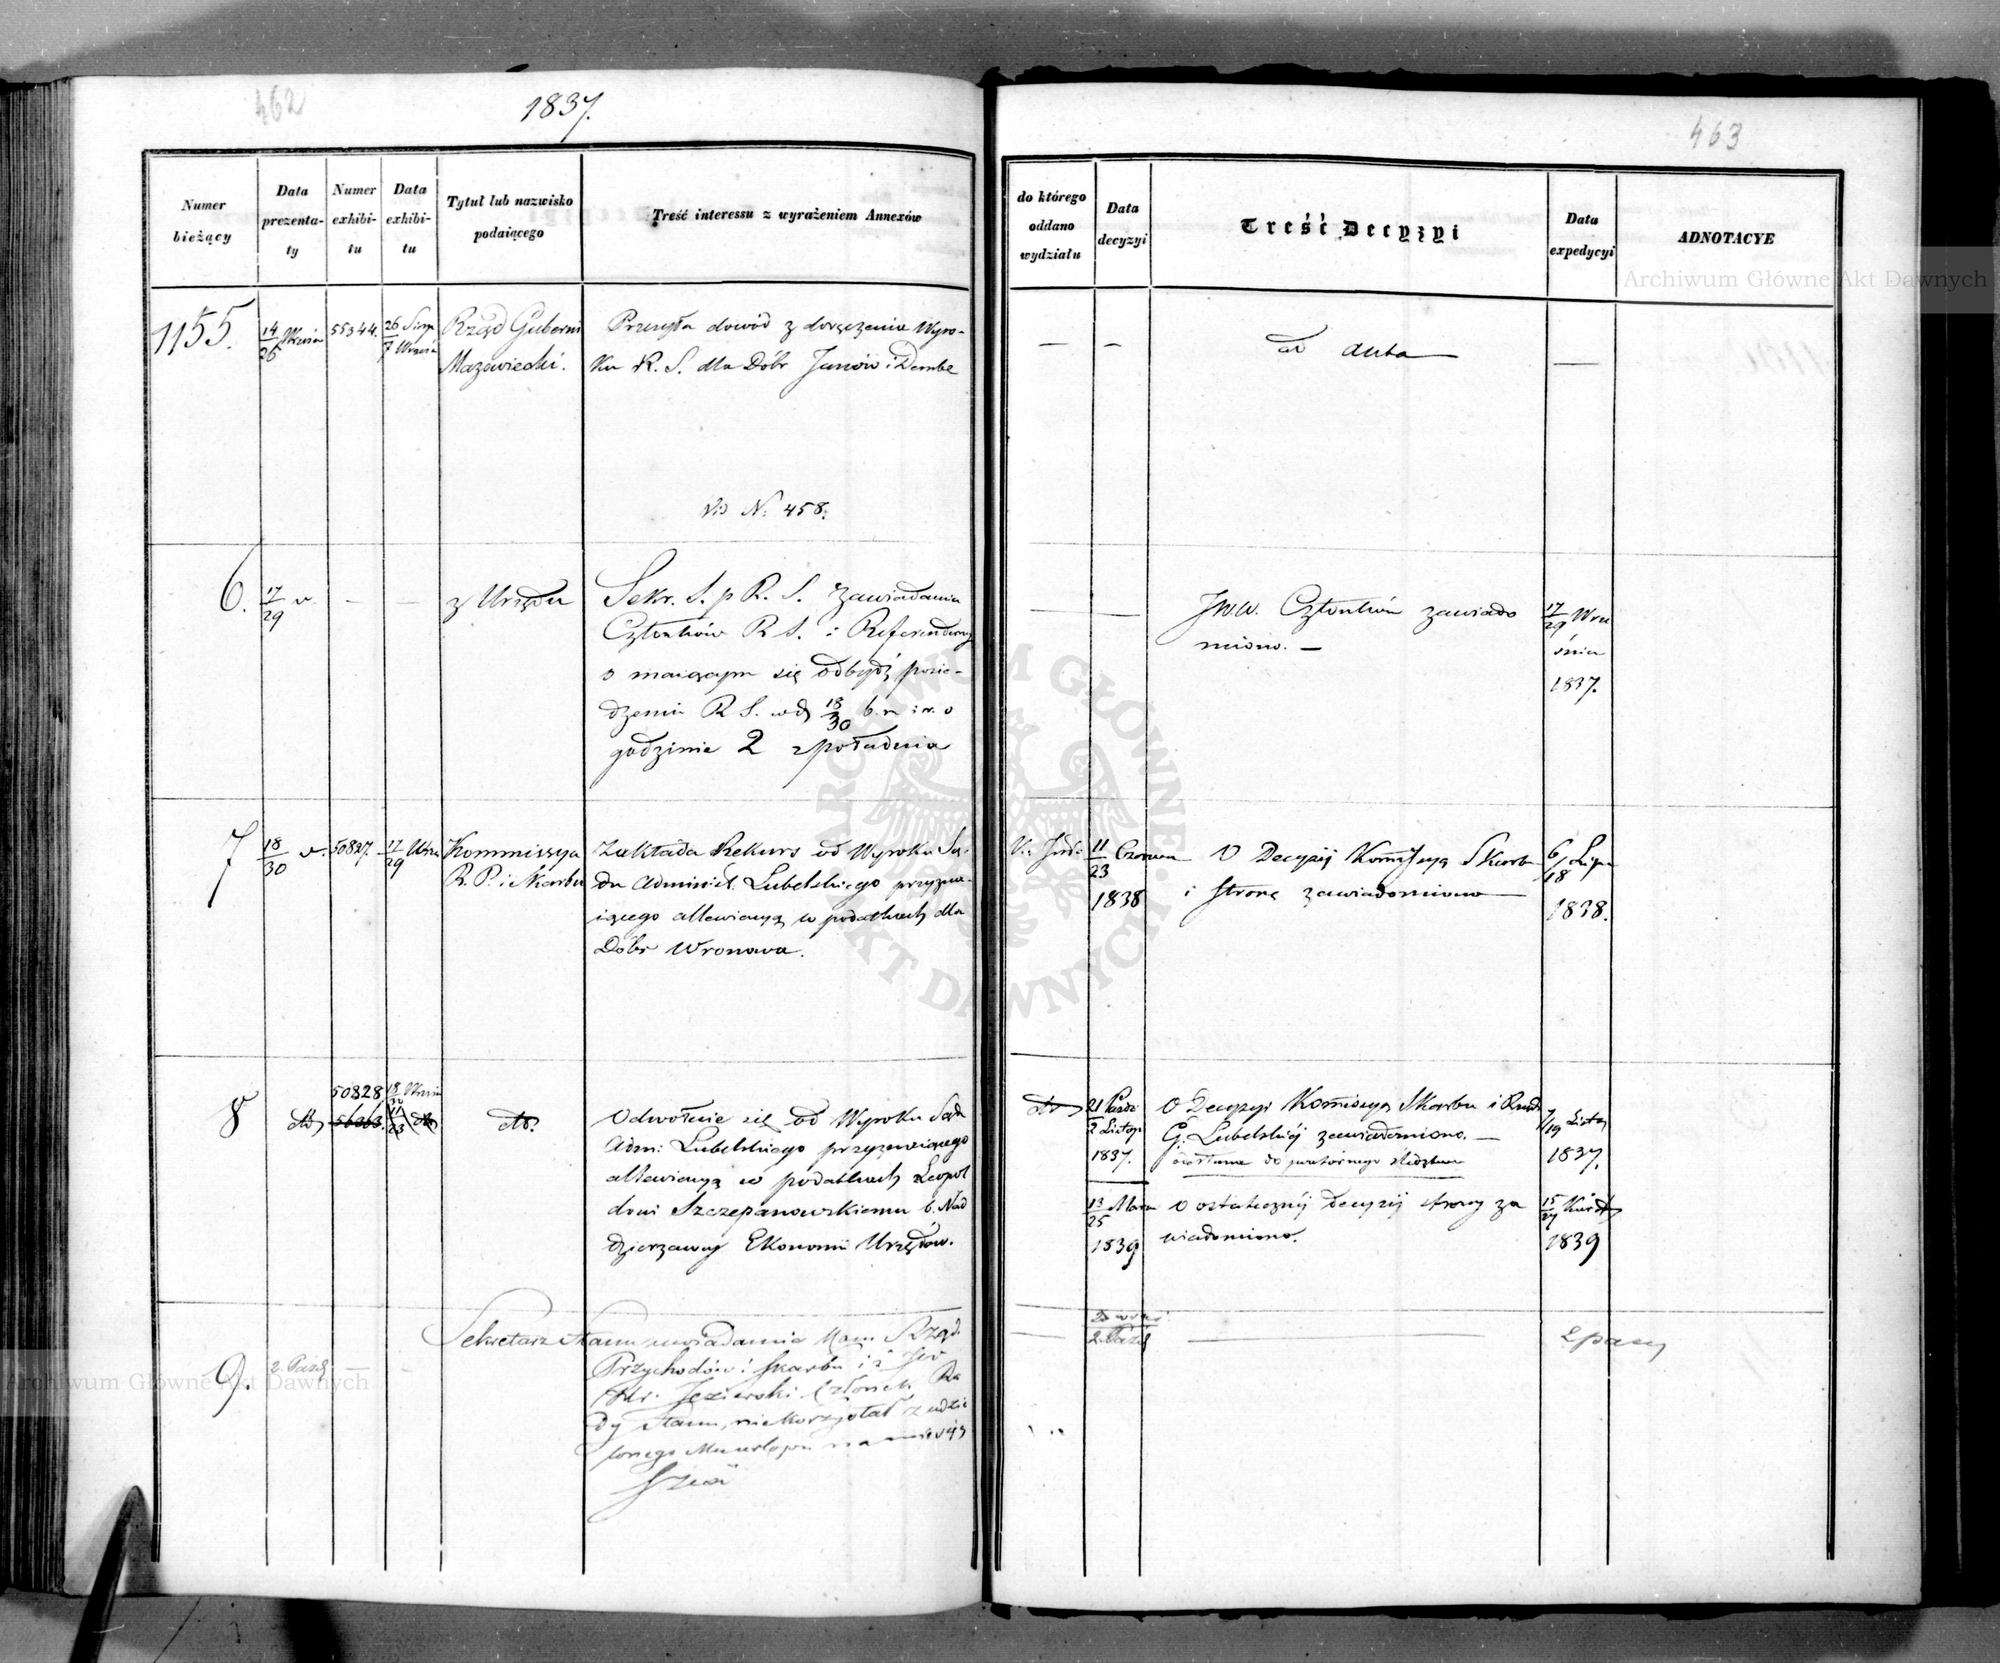 462
1837.
Numer bieżący
Data prezenta-ty
Numer exhibi-tu
Data exhibi-tu
Tytuł lub nazwisko podaiącego
Treść interessu z wyrażeniem Annexów
1155.
14/26 Wrześn
55344.
26 Sierp
7 Wrześn
Rząd Gubern
Mazowiecki.
Przesyła dowód z doręczenia Wyro-
ku R. S. dla Dóbr Janów i Dembe
N: 458.
6.
17/29 w.
—
—
z Urzędu
Sekr. S. p R. S. zawiadamia
Członków R S. i Referendarzy
o maiącym się odbydź posie-
dzeniu R S. w d. 18/30 b. m i r. o
godzinie 2 z południa
7
18/30 w.
50827.
17/29 Wrz
Kommissya
R. P. i Skarbu
Zakłada Rekurs od Wyroku Są-
du Administ. Lubelskiego przyzna-
iącego allewiacyą w podatkach dla
Dóbr Wronowa.
8
dto
50828.
18/30 Wrześn
dto.
Odwołuie się od Wyroku Sądu
Adm: Lubelskiego przyznaiącego
allewiacyą w podatkach Leopol
dowi Szczepanowskiemu b. Nad
dzierzawcy Ekonomii Urzędów.
9.
2. Paźd
—
—
Sekretarz Stanu uwiadamia Kom. Rząd.
Przychodów i Skarbu iż JW
Hr. Jezierski Członek Ra
dy Stanu, nie korzystał z udzie
lonego Mu urlopu na miesiąc
463
do którego oddano wydziału
Data decyzyi
Treść Decyzyi
Data expedycyi
ADNOTACYE
—
—
ad acta
—
—
—
JWW. Członków zawiado
miono. —
17/29 Wrze
śnia
1837.
11/23 Czerwca
1838
O Decyzij Kommissyą Skarbu
i Stronę zawiadomiono
6/18 Lipca
1838.
dto
21 Paźdz
2 Listop
1837.
O Decyzyi Kommissyą Skarbu i Rząd
G. Lubelskiéj zawiadomiono. —
7/19 Listop
1837.
13/25 Marca
1839
O ostatecznéj decyzij strony za
wiadomiono.
15/27 Kwiet
1839
—
2. Paźd
Archiwum Główne Akt Dawnych
ARCHIWUM GŁÓWNE AKT DAWNYCH
Archiwum Główne Akt Dawnych